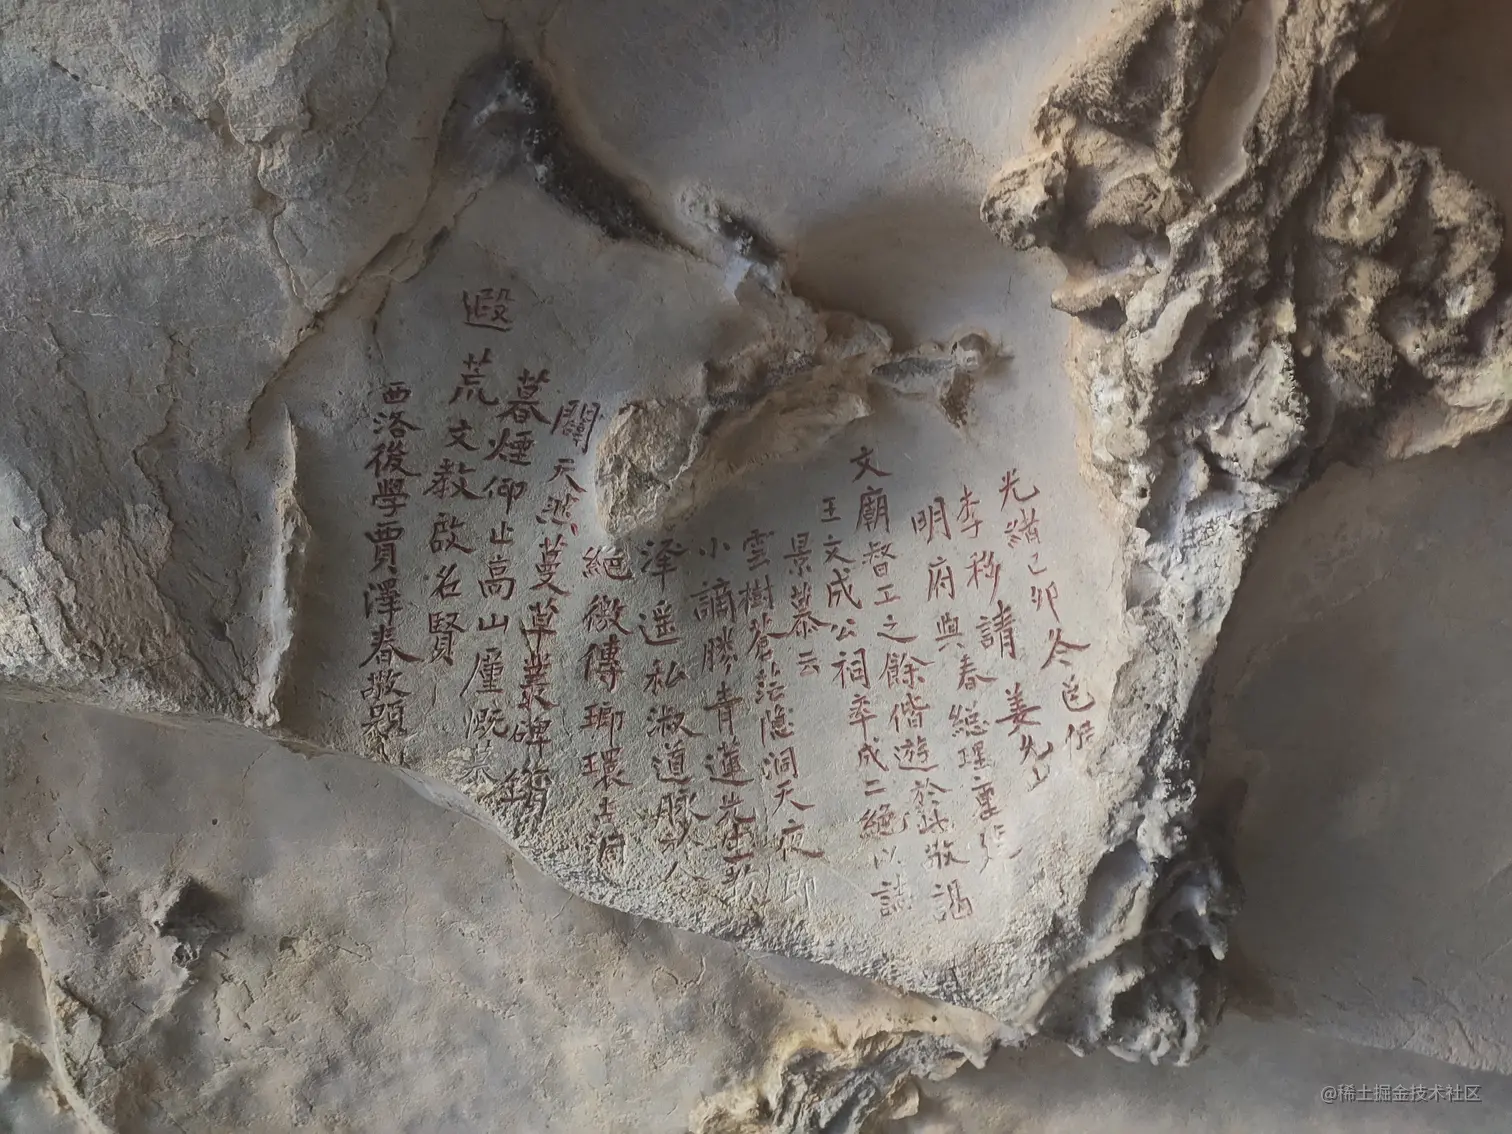 光緒己卯冬邑侯
李移請姜先山
明府與春總理重
文廟督工之餘偕遊於此敬謁
王文成公祠率成二絕以誌
景慕云
雲樹蒼茫隱洞天夜
小謫勝青蓮先生
澤遥私淑道脈人
絕徼傳瑯環古洞
闢天然蔓草叢碑
暮煙仰止高山廑溉慕
遐荒文教啟名賢
西洛後學賈澤春敬題
@稀土掘金技术社区